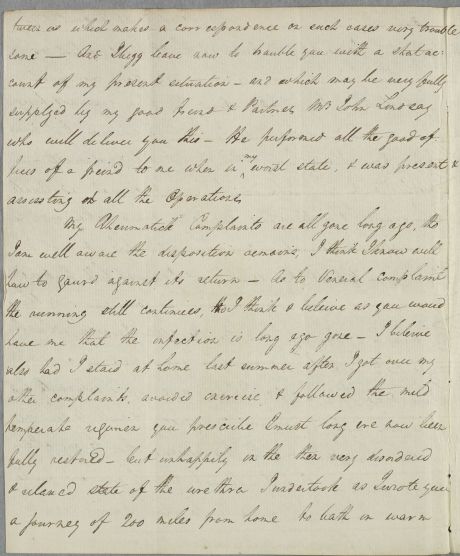 tween us which makes a correspondence on such cases very trouble
some — And I begg leave now to trouble you with a short ac:
count of my present situation — and which may be very fully
supplyed by my good freind & Partner Mr John Lindsay
who will deliver you this — He performed all the good of:
fices of a freind to me when in my worst state, & was present &
assisting at all the Operations
My Rheumatick Complaints are all gone long ago, tho
I am well aware the disposition remains, I think I know well
how to gaurd against its return — As to Veneral complaint
the running still continues, tho I think & beleive as you would
have me that the infection is long ago gone — I beleive
also had I staid at home last summer after I got over my
other complaints, avoided exercise, & followed the mild
temperate regimen you prescribe I must long ere now been
fully restored — but unhappily in the then very disordered
& relaxed state of the urethra I undertook as I wrote you
a journey of 200 miles from home to bath in warm